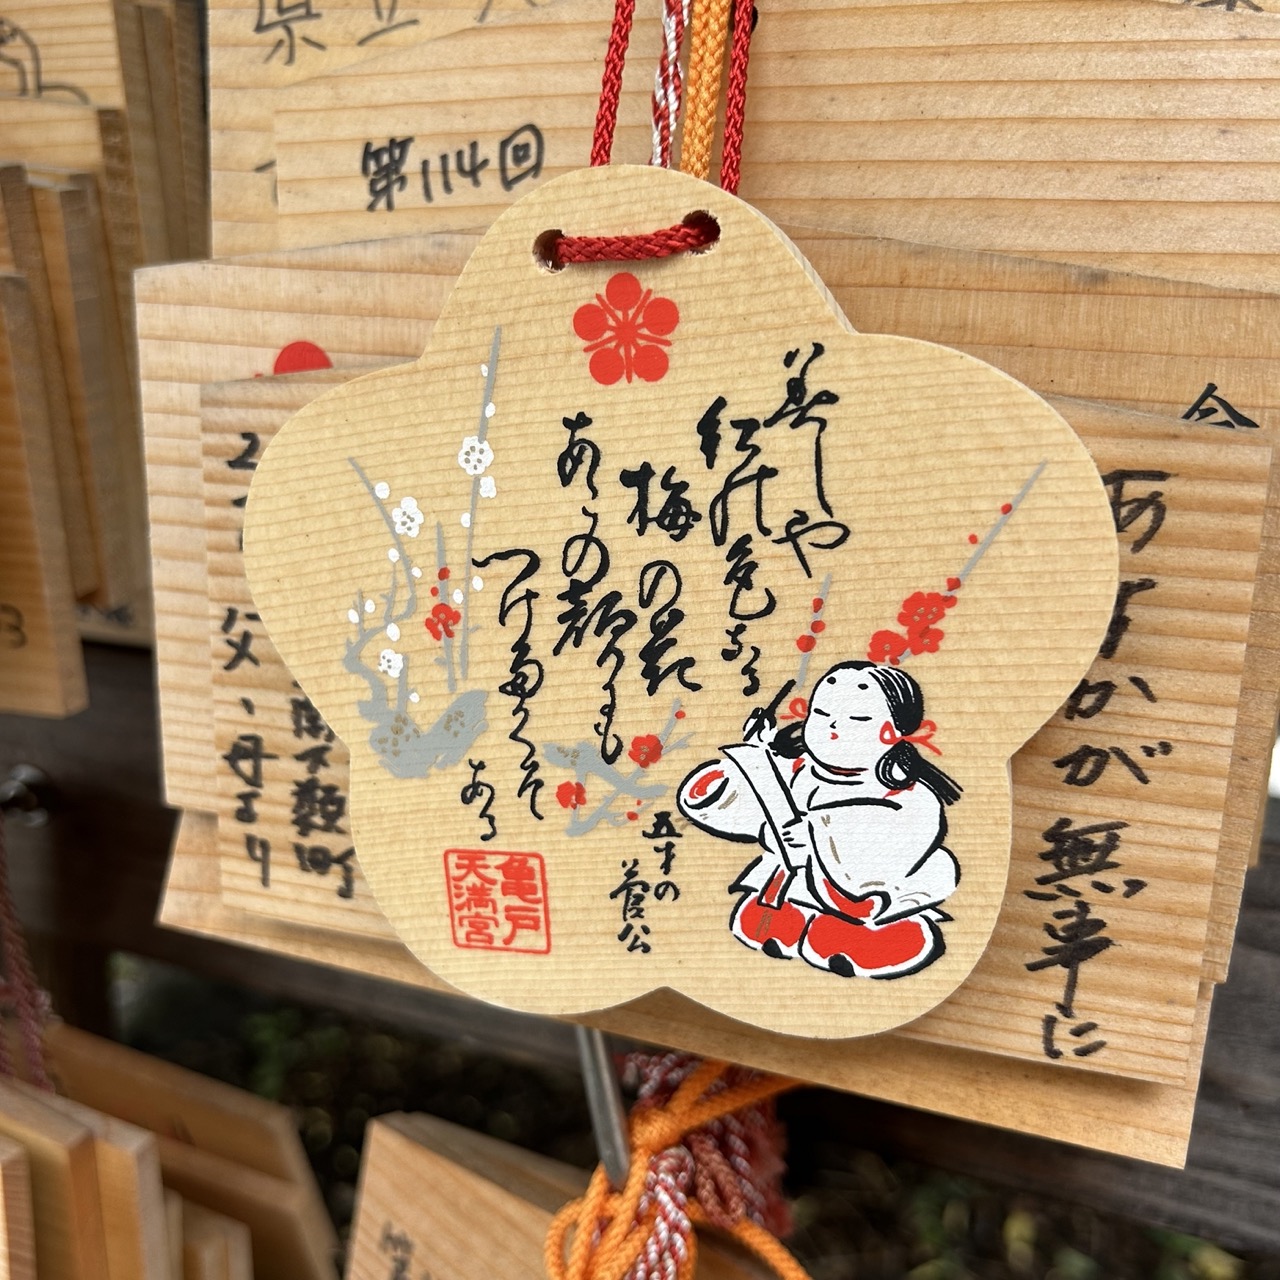 美しや
紅の色なる
梅の花
あこの顔にも
つけたくぞ
ある
五才の
菅公
亀戸
天満宮
第114回
あすかが
無事に
父、母より